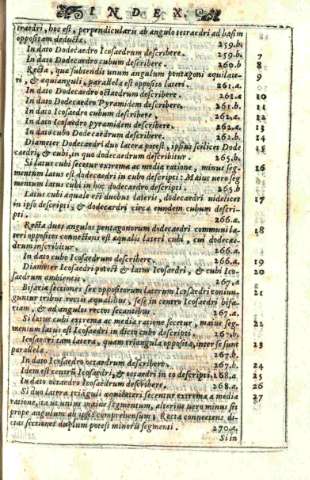 INDEX.
traedri, hoc est, perpendicularis ab angulo tetraedri ad basim
oppositam deducta. 259.b.
In dato Dodecaedro Icosaedrum describere. 259.b. 7
In dato Dodecaedro cubum describere. 260.b. 8
Recta, quæ subtendit unum angulum pentagoni æquilate-
ri, & æquianguli, parallela est opposito lateri. 261.a. 9
In dato Dodecaedro octaedrum describere. 261.a. 10
In dato Dodecaedro Pyramidem describere. 261.b. 11
In dato Icosaedro cubum describere. 262.a. 12
In dato Icosaedro pyramidem describere. 262.a. 13
In dato cubo Dodecaedrum describere. 262.b. 14
Diameter Dodecaedri duo latera potest, ipsius scilicet Dode 15
caedri, & cubi, in quo dodecaedrum describitur. 265.b.
Si latus cubi secetur extrema ac media ratione, minus seg- 16
mentum latus est dodecaedri in cubo descripti: Maius vero seg
mentum latus cubi in hoc dodecaedro descripti. 265.b
Latus cubi æquale est duobus lateris, dodecaedri videlicet 17
in ipso descripti, & dodecaedri circa eundem cubum descri-
pti. 266.a.
Recta duos angulos pentagonorum dodecaedri communi la- 18
teri oppositos connectens est æqualis lateri cubi, cui dodecae-
drum inscribitur. 266.a.
In dato cubo Icosaedrum describere. 266.a. 19
Diameter Icosaedri potest & latus Icosaedri, & cubi Ico- 20
saedrum ambientis. 267.a
Bifariæ sectiones oppositorum laterum Icosaedri coniun- 21
guntur tribus rectis æqualibus, sese in centro Icosaedri bifa-
riam, & ad angulos rectos secantibus. 267.a.
Si latus cubi extrema ac media ratione secetur, maius seg- 22
mentum latus est Icosaedri in dicto cubo descripti.
Icosaedri tam latera, quam triangula opposita, inter se sunt 23
parallela. 267.b.
In dato Icosaedro octaedrum describere. 267.b. 24
Idem est centrum Icosaedri, & octaedri in eo descripti. 268.a. 25
In dato octaedro Icosaedrum describere. 268.a. 26
Si duo latera trianguli æquilateri secentur extrema a media 27
ratione, ita ut unius maius segmentum, alterius vero minus sit
prope angulum ab ipsis comprehensum: Recta connectens di-
ctas sectiones duplum potest minoris segmenti. 270.a.
Si in